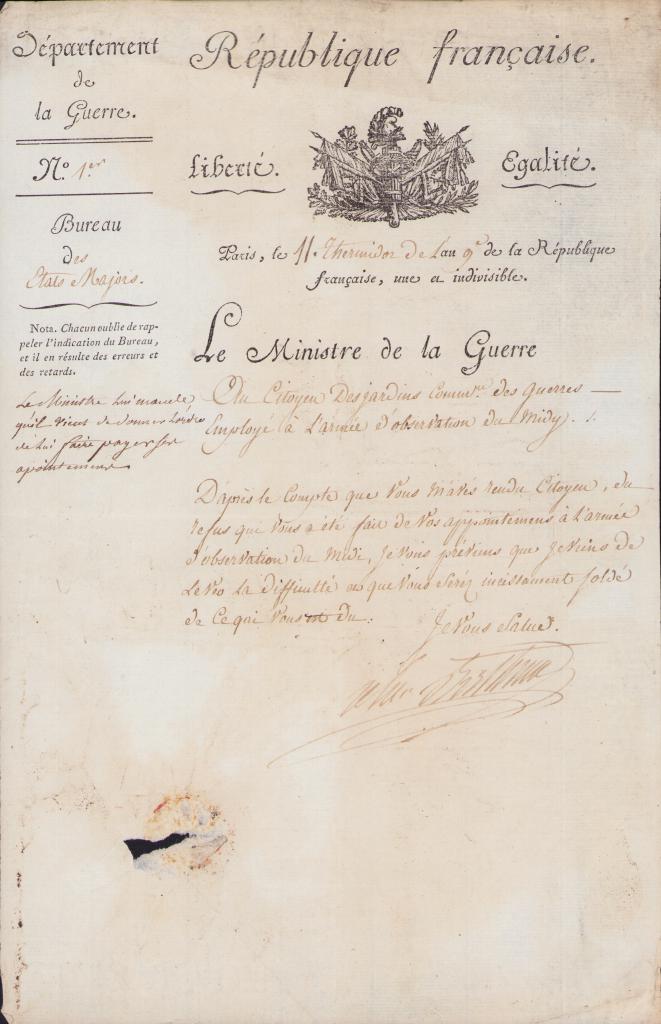 Département
de
la Guerre.
N.o 1.er
Bureau
des
Etats Majors.
Nota. Chacun oublie de rap-
peler l'indication du Bureau,
et il en résulte des erreurs et
des retards.
Le Ministre lui mande
qu'il vient de donner l'ordre
de lui faire payer ses
apointemens
République française.
Liberté.
Egalité.
Paris, le 11. Thermidor de L'an 9.e de la République
française, une et indivisible.
Le Ministre de la Guerre
Au Citoyen Desjardins Commre. des Guerres
Employé à L'armée d'observation du Midy.
D'après le Compte que vous m'avés rendu Citoyen, du
refus qui vous a été fait de vos appointemens à L'armée
d'observation du Midi, Je vous préviens que Je viens de
Lever La difficulté et que vous Seréz incessament soldé
de Ce qui vous est du. Je vous Salue.